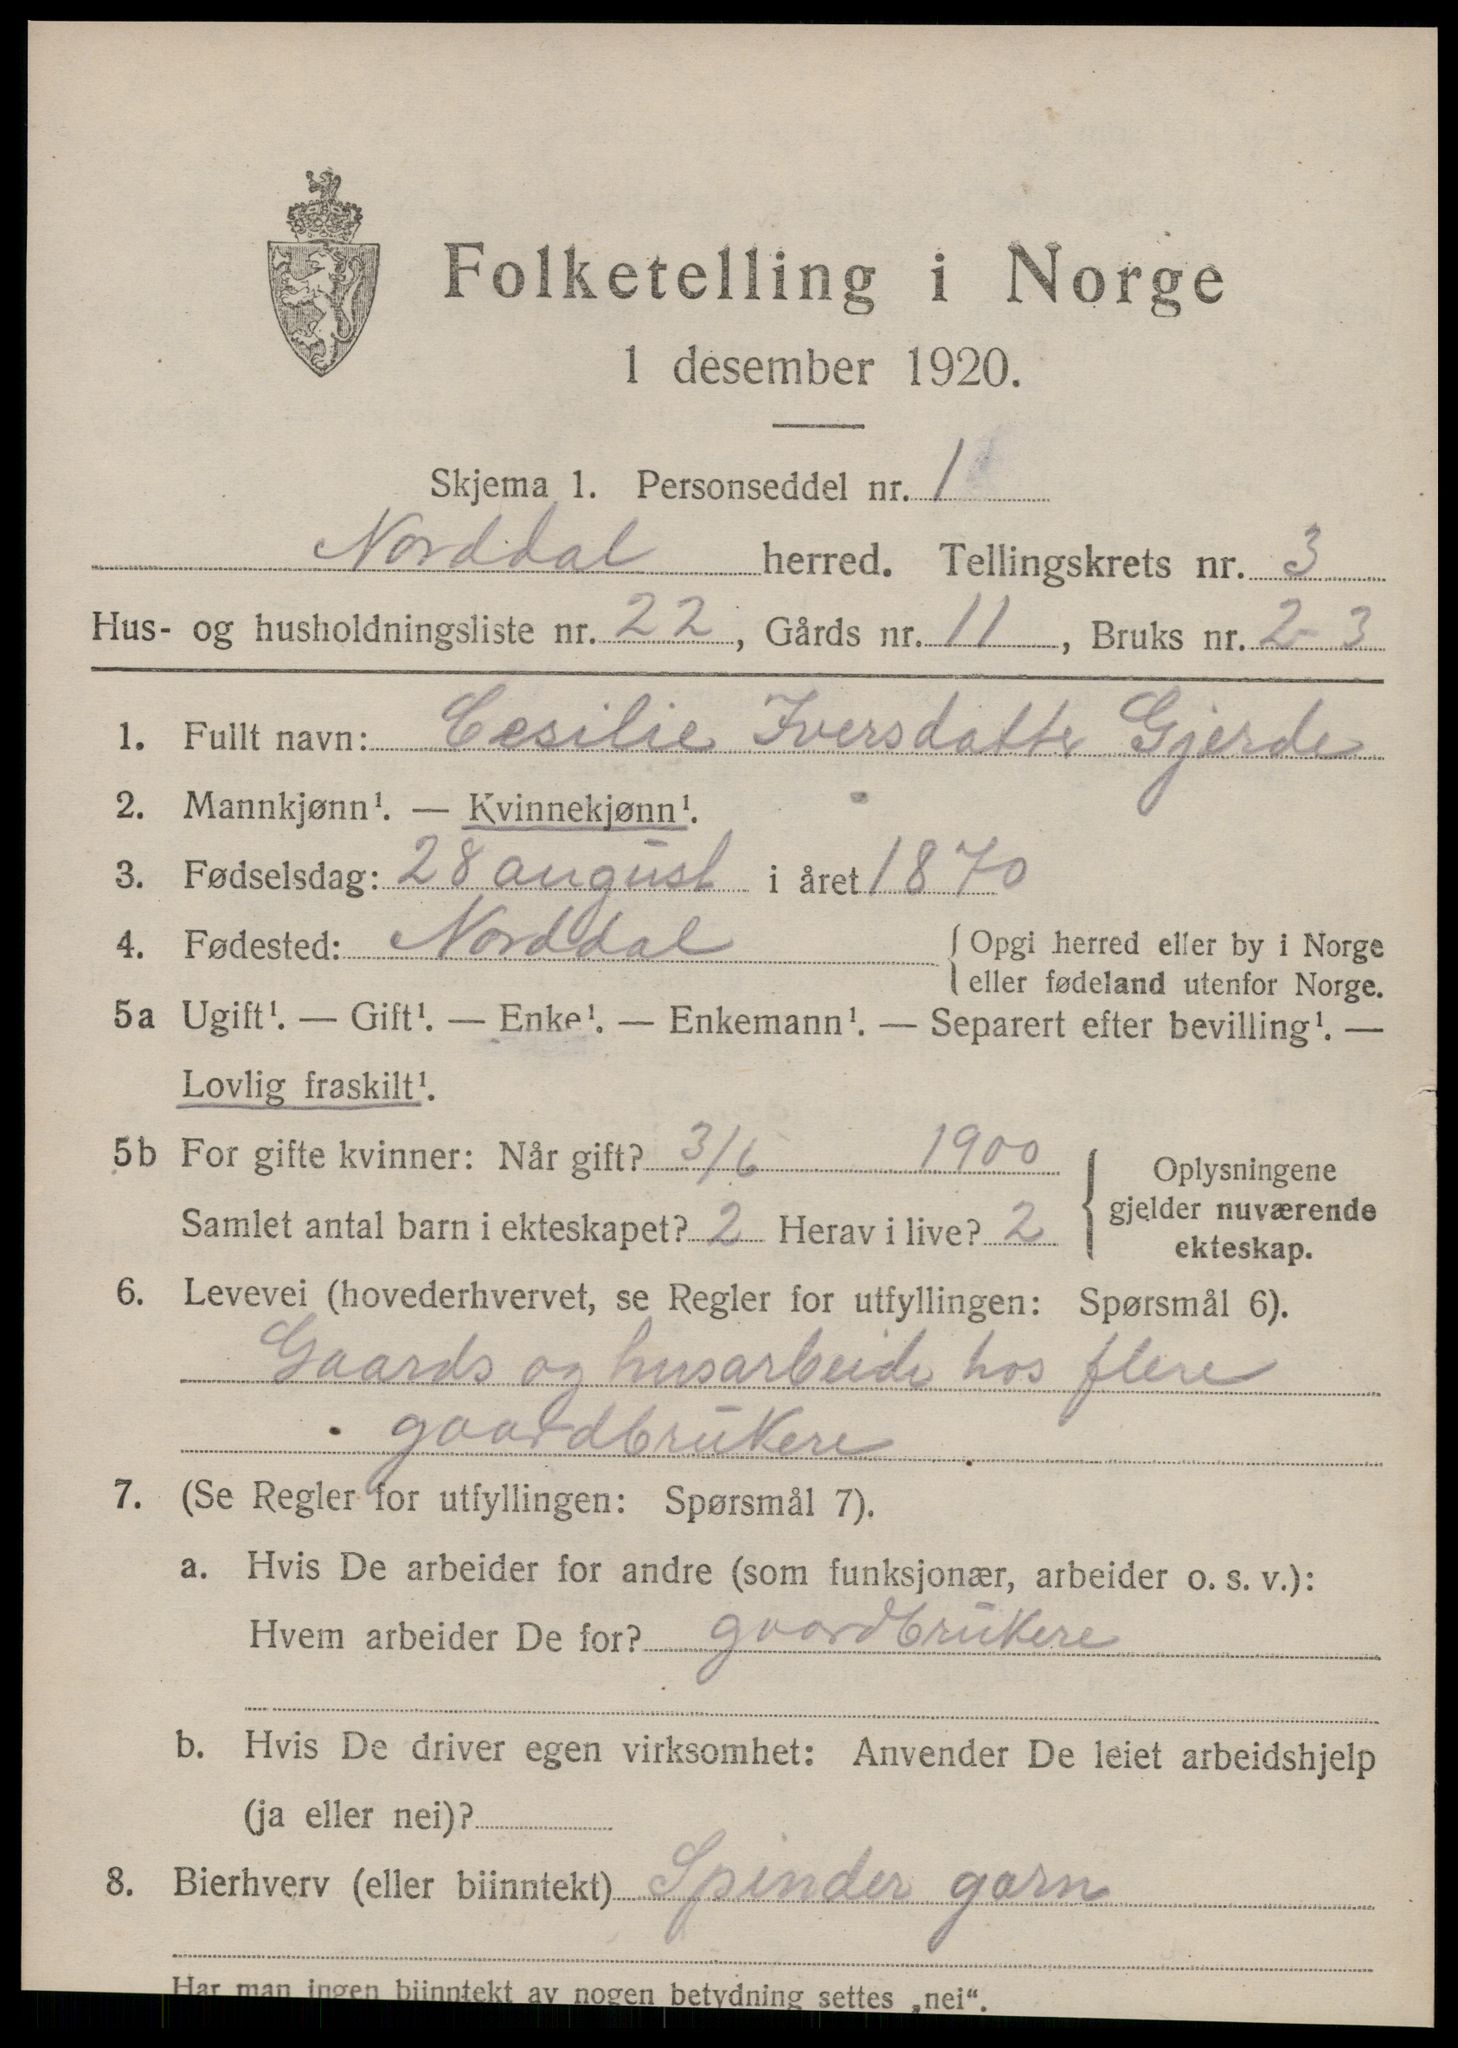 Folketelling i Norge
1 desember 1920.
Skjema 1. Personseddel nr. 1
Norddal herred. Tellingskrets nr. 3
Hus- og husholdningsliste nr. 22, Gårds nr. 11, Bruks nr. 2-3
1. Fullt navn: Cesilie Iversdatte Gjerde
2. Mannkjønn¹. — Kvinnekjønn¹.
3. Fødselsdag: 28 august i året 1870
4. Fødested: Norddal { Opgi herred eller by i Norge
eller fødeland utenfor Norge.
5a Ugift¹. — Gift¹. — Enke¹. — Enkemann¹. — Separert efter bevilling¹. —
Lovlig fraskilt¹.
5b For gifte kvinner: Når gift? 3/6 1900
Samlet antal barn i ekteskapet? 2 Herav i live? 2
{ Oplysningene
gjelder nuværende
ekteskap.
6. Levevei (hovederhvervet, se Regler for utfyllingen: Spørsmål 6).
Gaards og husarbeide hos flere
gaardbrukere
7. (Se Regler for utfyllingen: Spørsmål 7).
a. Hvis De arbeider for andre (som funksjonær, arbeider o. s. v.):
Hvem arbeider De for? gaardbrukere
b. Hvis De driver egen virksomhet: Anvender De leiet arbeidshjelp
(ja eller nei)?
8. Bierhverv (eller biinntekt) Spinder garn
Har man ingen biinntekt av nogen betydning settes „nei“.